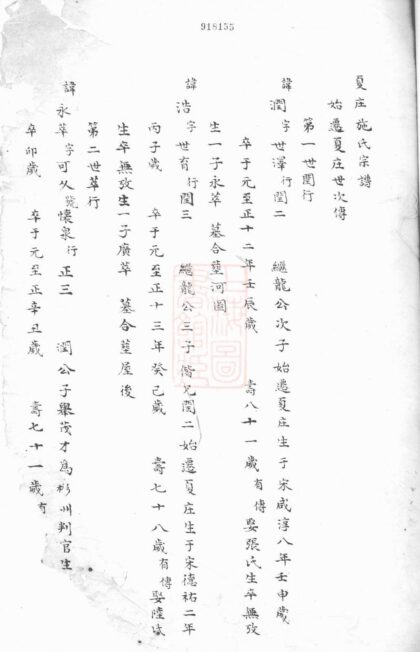 918155
夏庄施氏宗譜
始遷夏庄世次傳
第一世閏行
諱潤字世澤行閏二 繼龍公次子始遷夏庄生于宋咸淳八年壬申歲
卒于元至正十二年壬辰歲 壽八十一歲有傳 娶張氏生卒無攷
生一子永萃 墓合塟河圖
諱浩字世育行閏三 繼龍公三子偕兄閏二始遷夏庄生于宋德祐二年
丙子歲 卒于元至正十三年癸巳歲 壽七十八歲有傳娶陸氏
生卒無攷生一子廣萃 墓合塟屋後
第二世萃行
諱永萃字可久號懷泉行正三 潤公子舉茂才為彬州判官生
辛卯歲 卒于元至正辛丑歲 壽七十一歲有